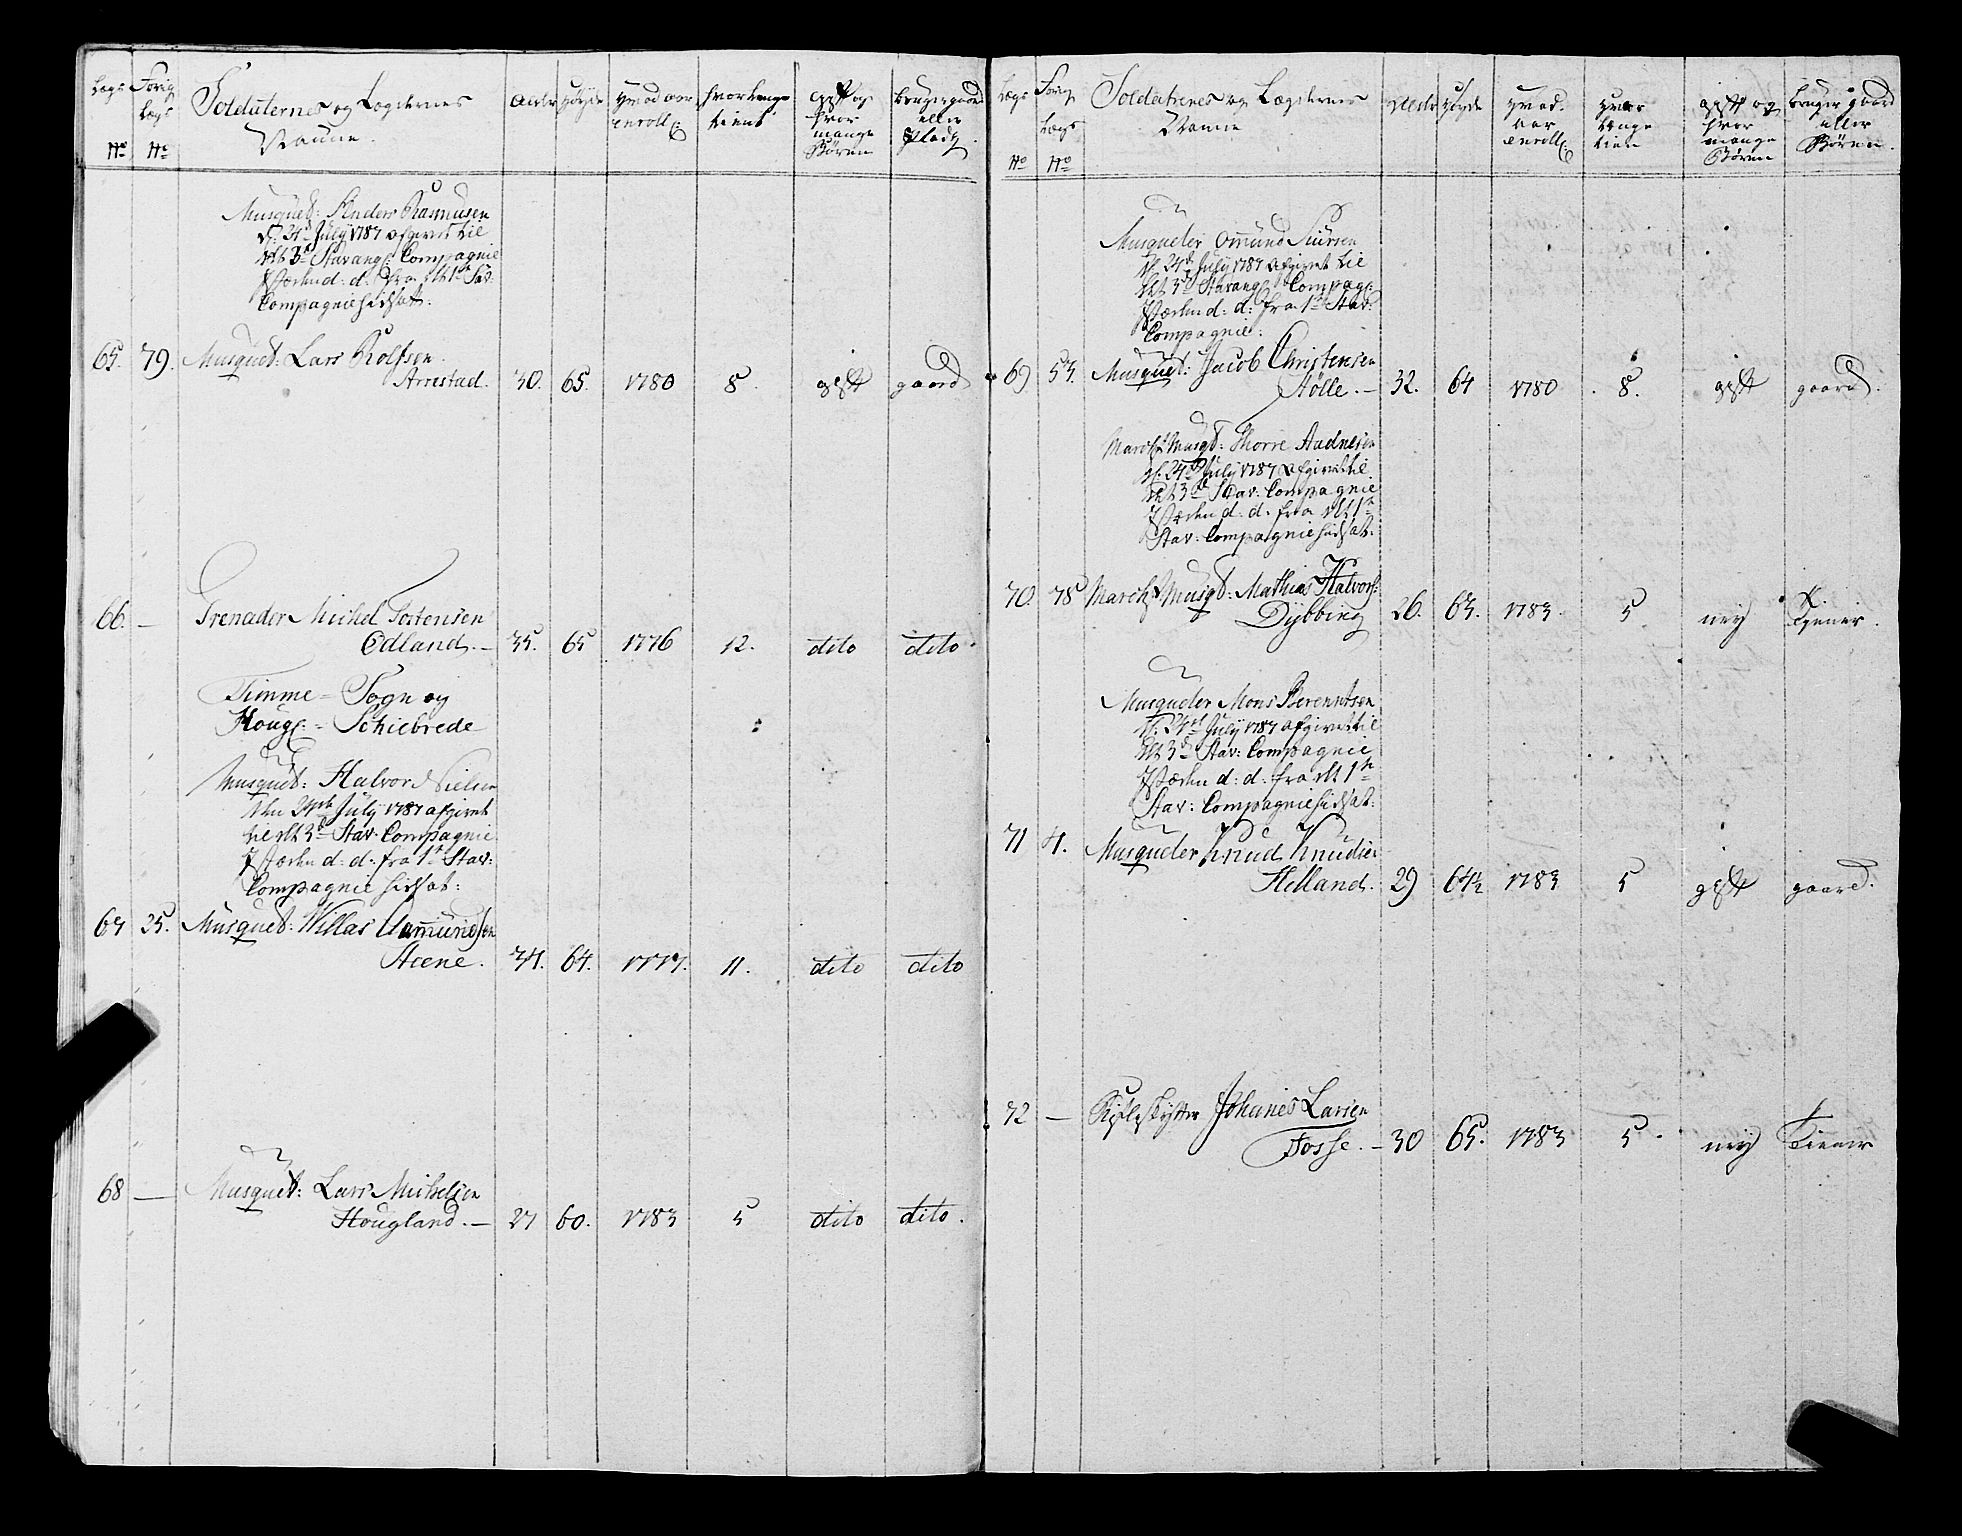 Lægs No
Forig Lægs No
Soldaternes og Lægdernes
Naune.
Alder
Høyde
Hvad aar
enroll:
Hvorlenge
tient
gift og
hvor
mange
Børen
bruger gaard
eller
Plads.
Musquet: Anders Rasmusen
d: 24d July 1787 afgivet til
det 3d Stavang: Compagnie
Isteden d: d: fra det 1te Stav:
Compagnie hidsat:
65. 79. Musquet: Lars Rolfsen
Arrestad. 30. 65. 1780 8. gift gaard
66. — Grenader Michel Tostensen
Edland. — 35. 65 1776 12. dito dito.
Timme = Sogn og
Houg: = Schiebrede
Musquet: Halvor Nielsen
den 24de July 1787 afgivet
til det 3d Stav. Compagnie
Isteden d: d: fra 1te Stav:
Compagnie hidsat:
67 25. Musquet: Villas Aamundsen
Steene. 34. 64. 1777. 11. dito dito
68 — Musquet: Lars Michelsen
Hougland. — 27 60. 1783 5 dito dito.
Lægs No
Forig Lægs No
Soldaternes og Lægdernes
Naune
Alder
Høyde
Hvad
aar
enroll:
Hvor
længe
tient
gift og
hvor
mange
Børen
bruger gaard
eller
Børen.
Musqueter Omund Siursen
d: 24d July 1787 afgivet til
det 3d Stavang: Compag:
Isteden d: d: fra 1te Stav:
Compagnie:
69. 53. Musquet: Jacob Christensen
Holle. — 32. 64 1780 8. gift gaard.
March: Musqt: Thorre Audnesen
d: 24d July 1787 afgivet til
det 3d Stav: Compagnie
Isteden d: d: fra det 1te
Stav: Compagnie hidsat:
70. 78 March: Musqt: Mathias Halvors:
Dybbing 26. 63. 1783. 5 ney tjener.
Musqueter Mons Berentsen
d: 24d July 1787 afgivet til
det 3d Stav: Compagnie
Isteden d: d: fra det 1te
Stav: Compagnie hidsat:
71 4. Musqueter Knud Knudsen
Helland. 29 64½ 1783 5 gift gaard.
72 — Rifleskytter Johanes Larsen
Fosse. — 30 65. 1783 5. ney tiener